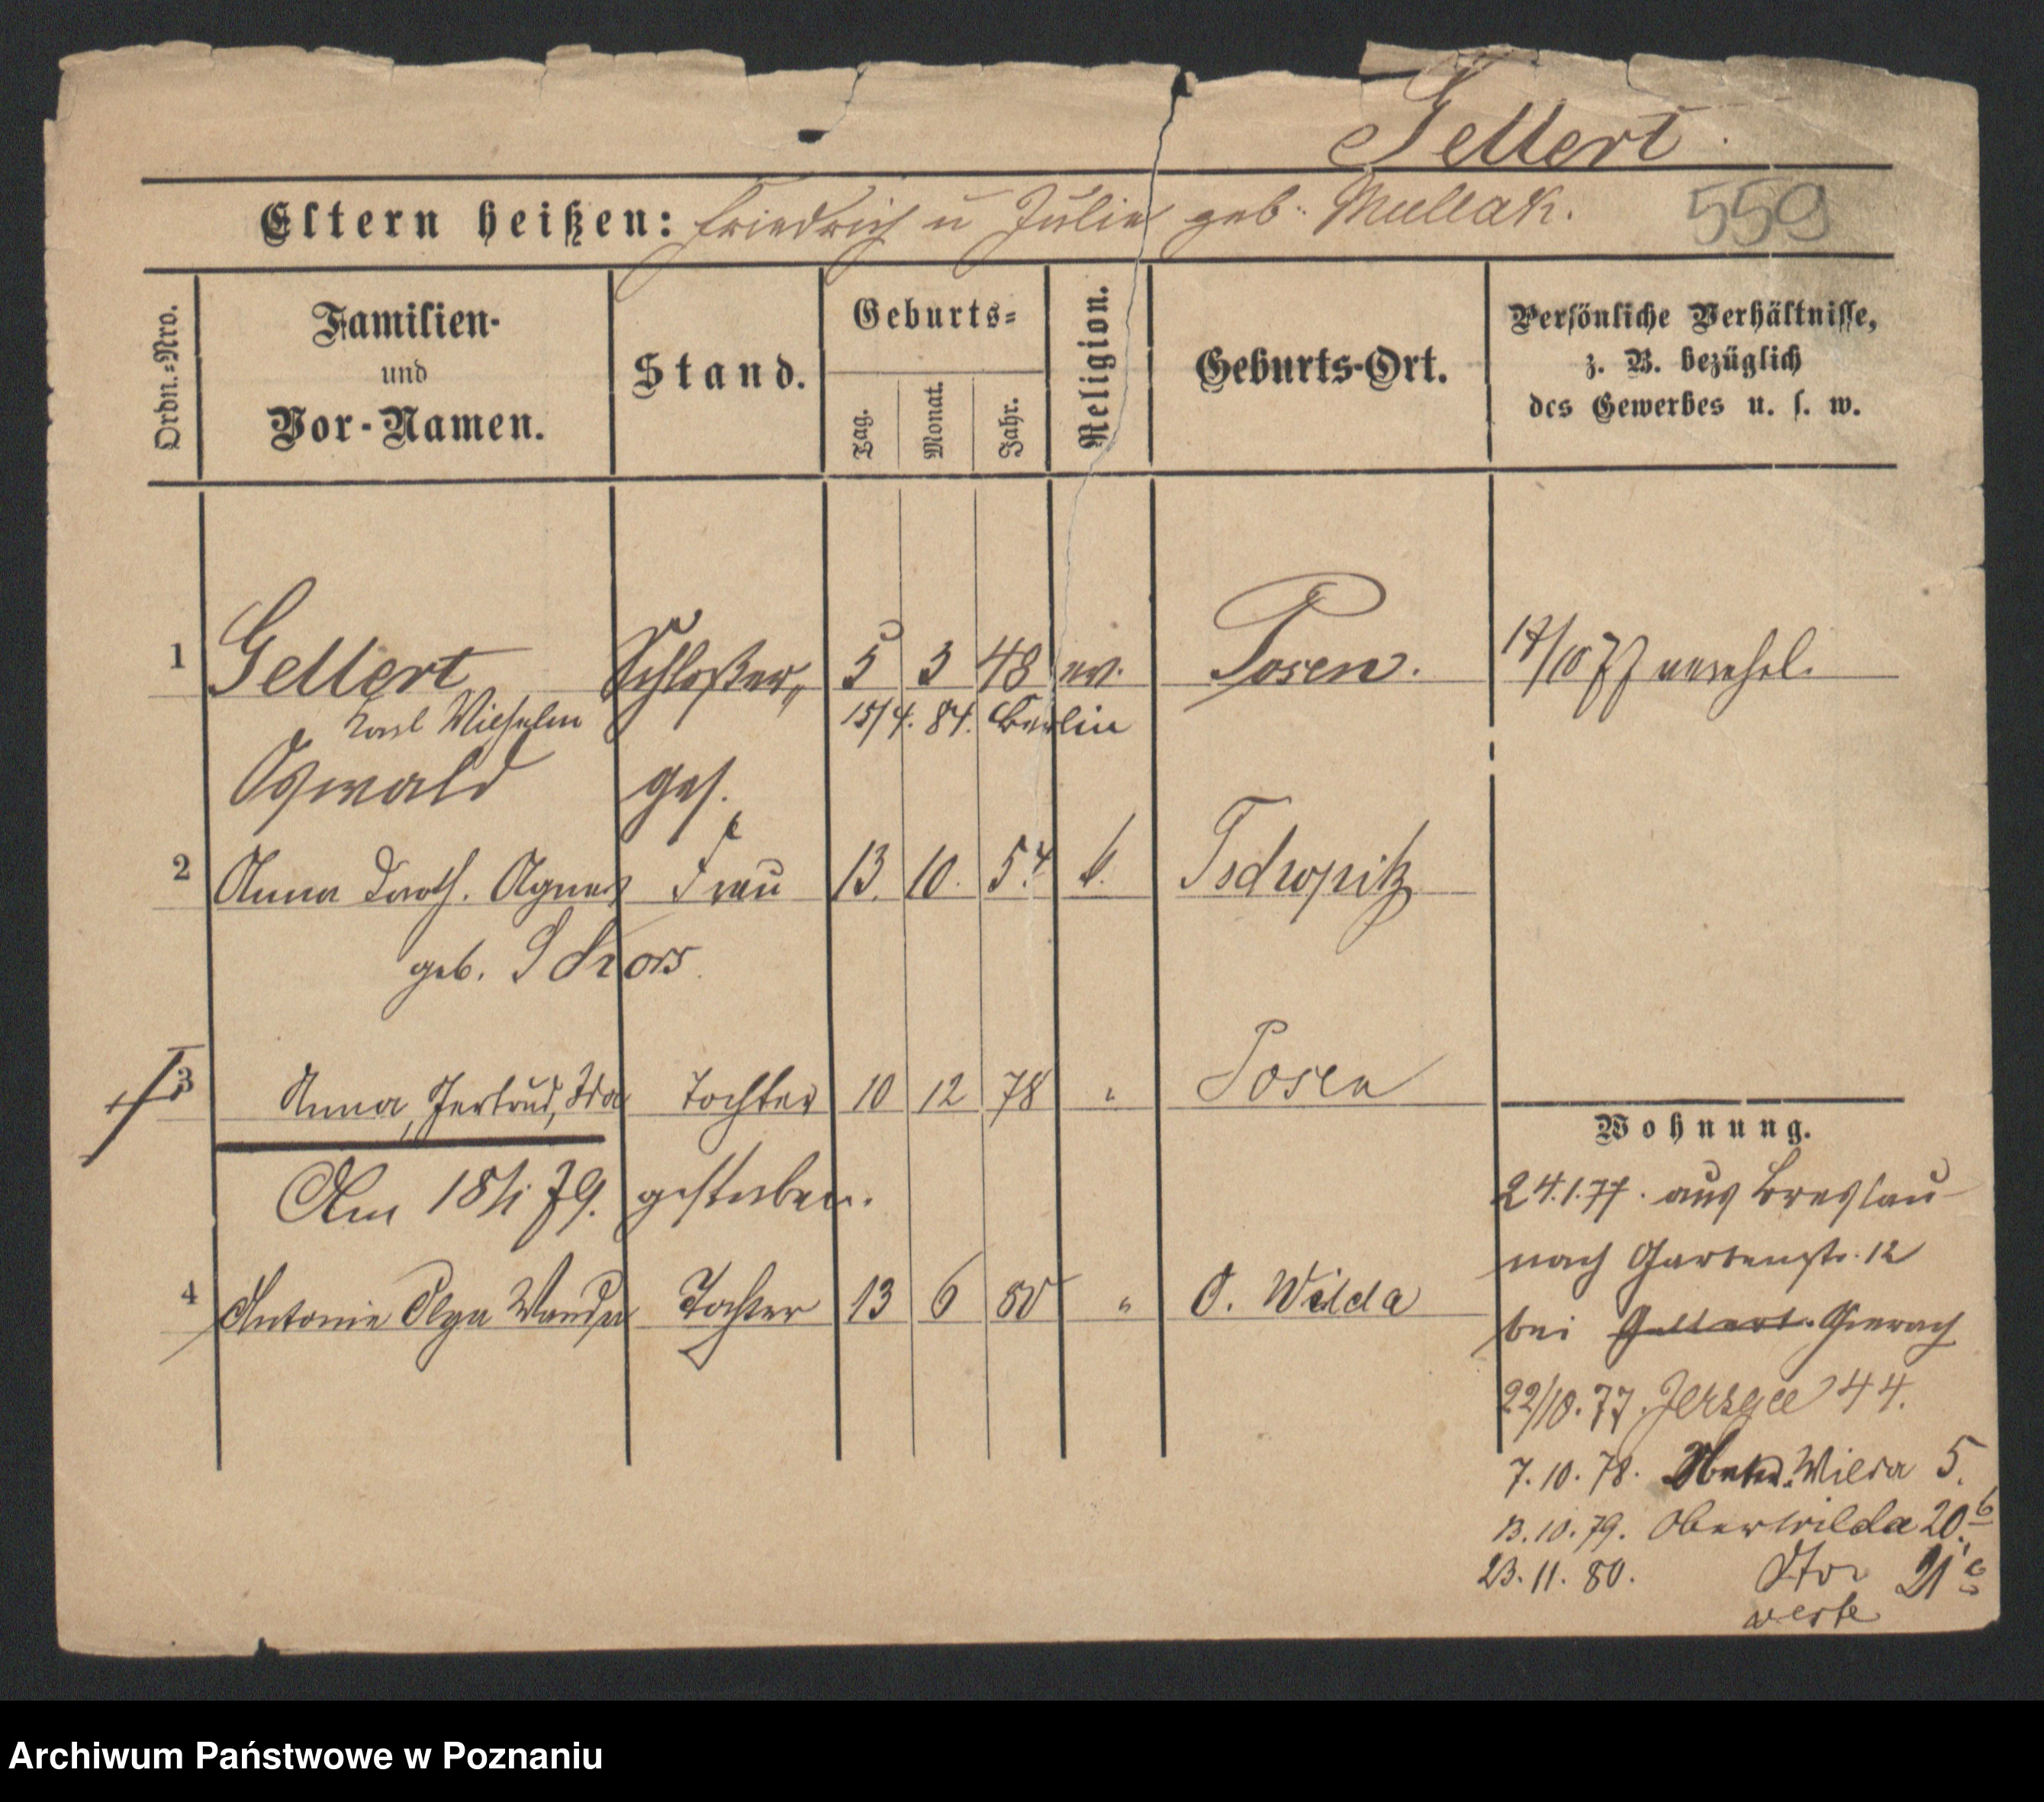 Gellert.
Eltern heißen: Friedrich u Julie geb. Mullak.
559
Ordn.-Nro.
Familien- und Vor-Namen.
Stand.
Geburts-
Tag. Monat. Jahr.
Religion.
Geburts-Ort.
Persönliche Verhältnisse,
z. B. bezüglich
des Gewerbes u. s. w.
1 Gellert Schloßer 5 3 48 ev. Posen. 17/10 77 verehel.
Karl Wilhelm 15/4. 84. Berlin
Oswald ges.
2 Anna Doroth. Agnes Frau 13. 10. 54 k.
geb.
3 Anna, Gertrud, Ida Tochter 10 12 78 " Posen
Am 18/1 79. gestorben.
4 Antonie Olga Wanda Tochter 13 6 80 " O. Wilda
Wohnung.
24.1.77. aus Breslau
nach Gartenstr. 12
bei Gellert. Gierach
22/10. 77. Jerzyce 44.
7. 10. 78. Ober Wilda 5.
13. 10. 79. Oberwilda 20.b
23. 11. 80. 21
Archiwum Państwowe w Poznaniu